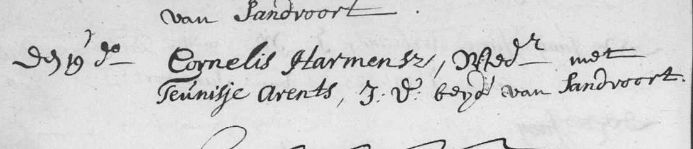 van Sandvoort.
Den 19 do Cornelis Harmensz, Wedr met
Teunisje Arents, J: D: beyde van Sandvoort.